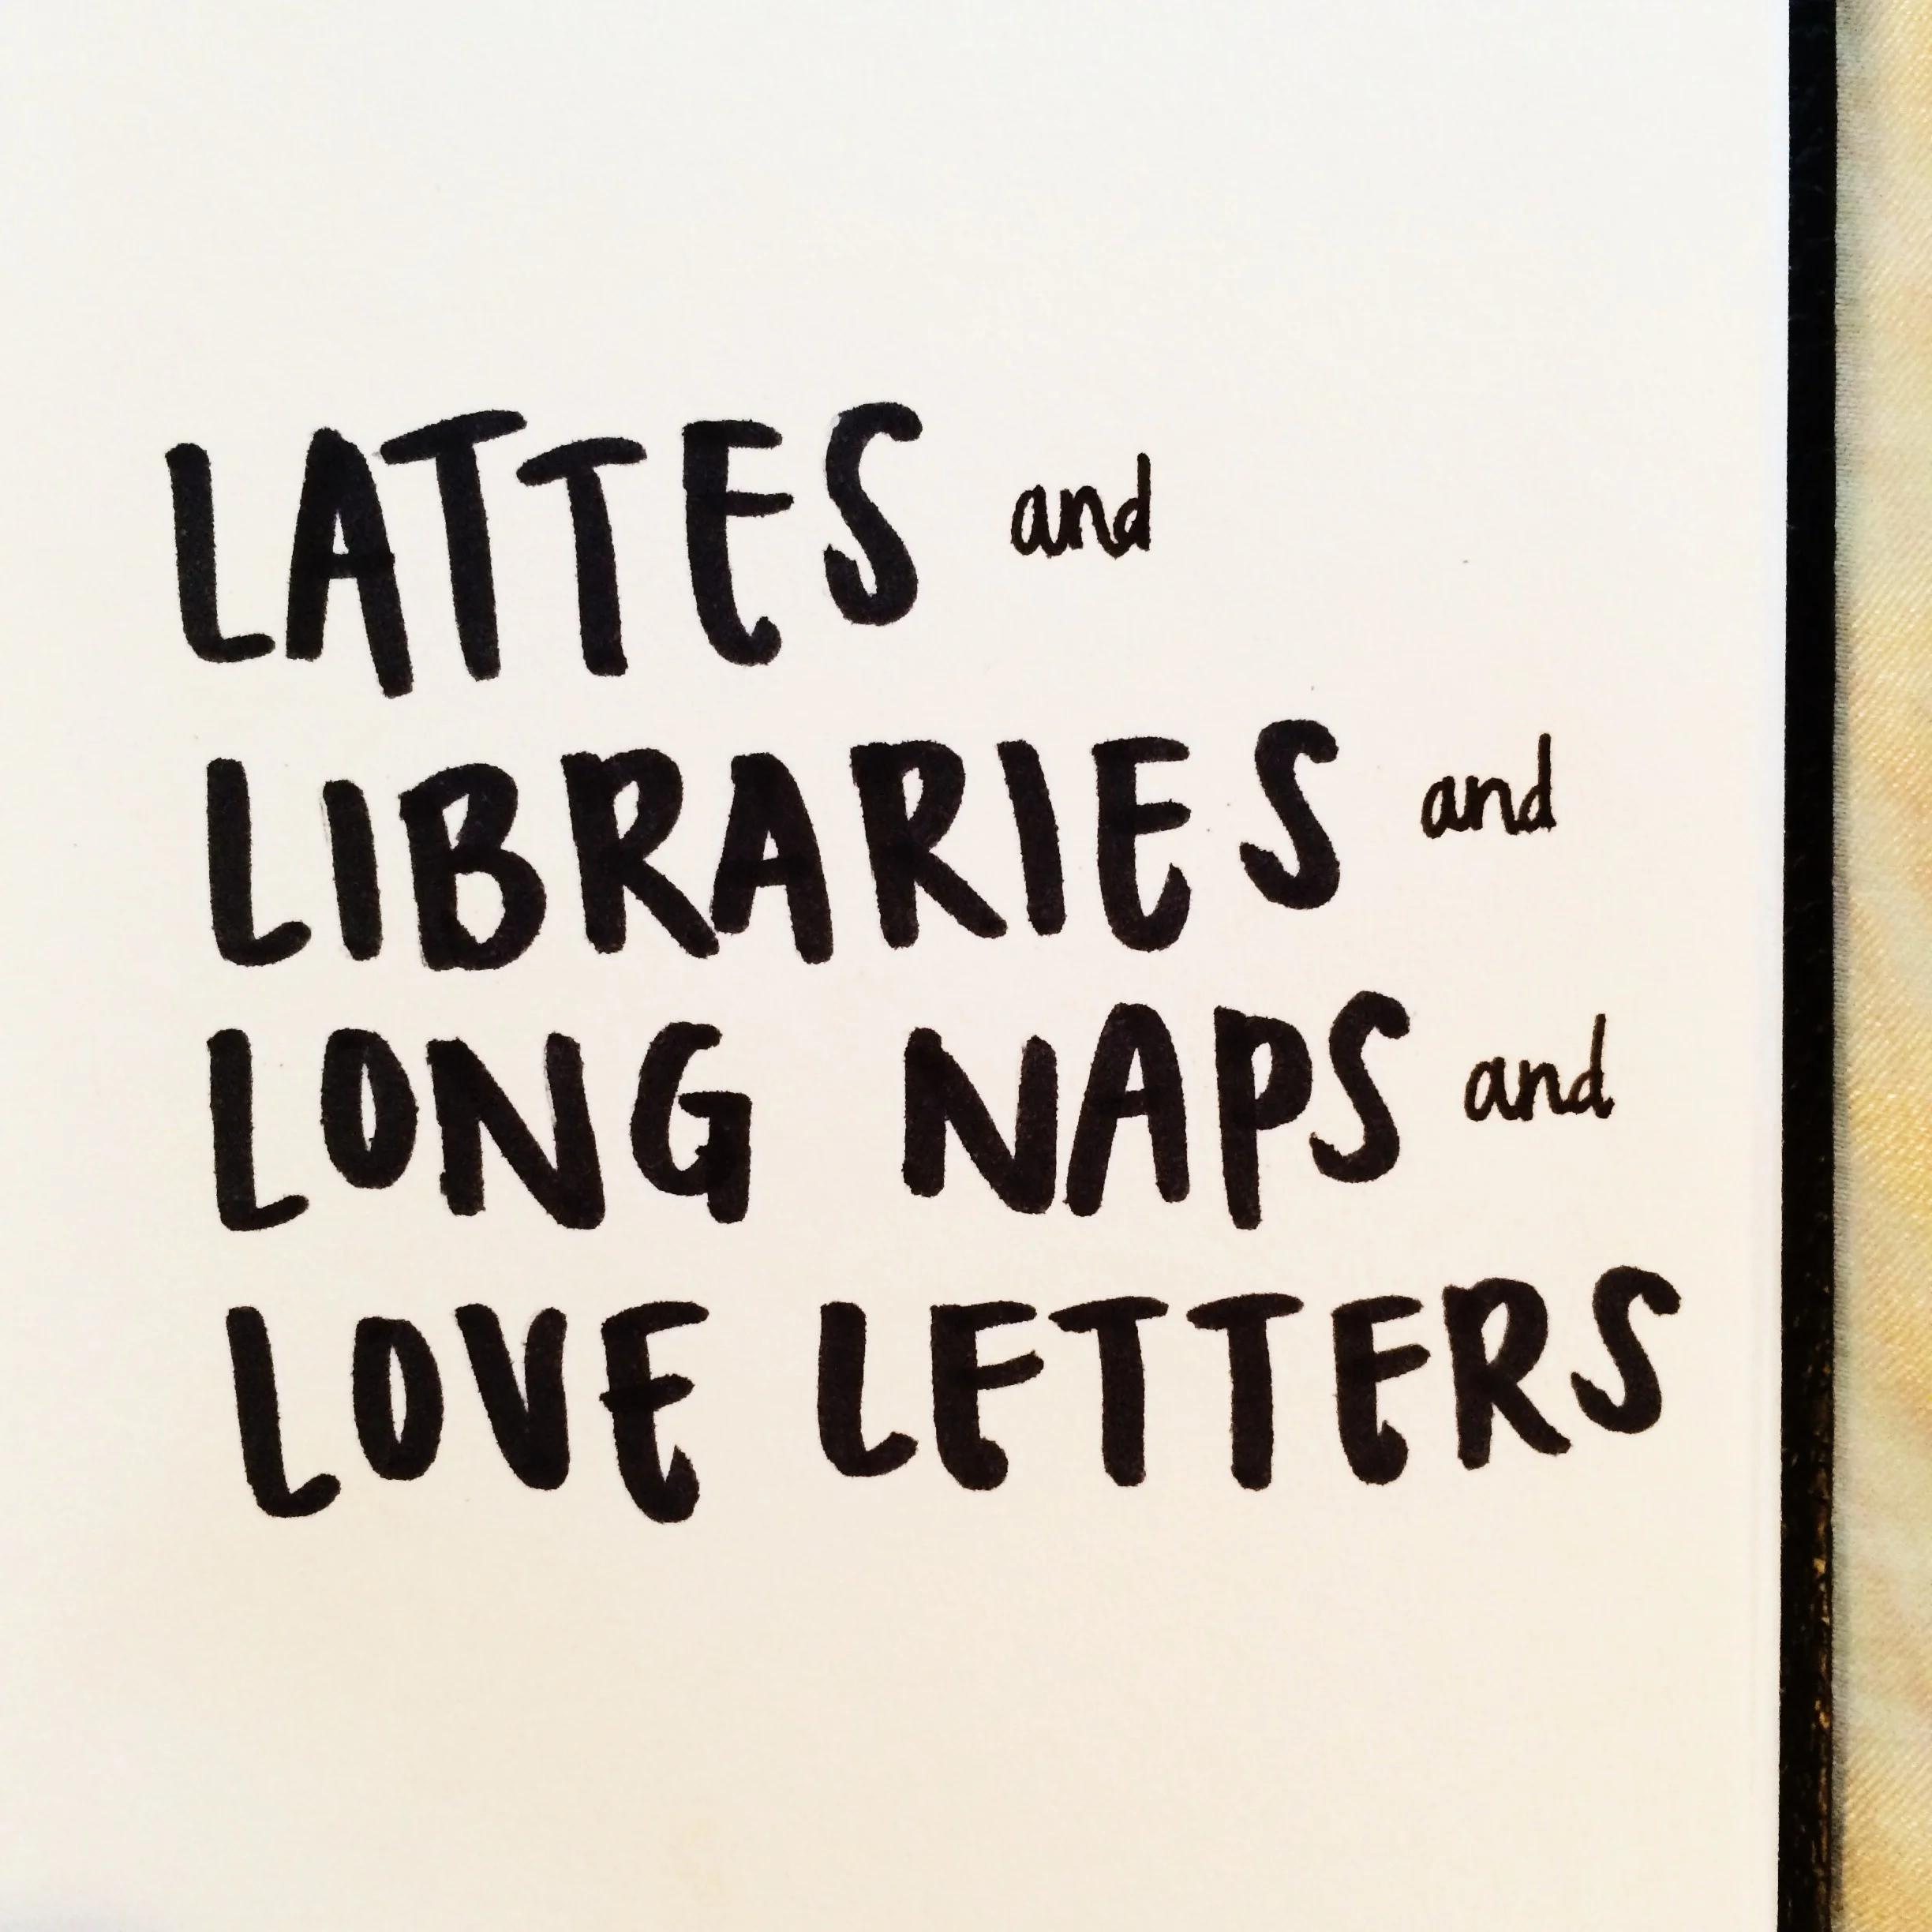 LATTES and
LIBRARIES and
LONG NAPS and
LOVE LETTERS